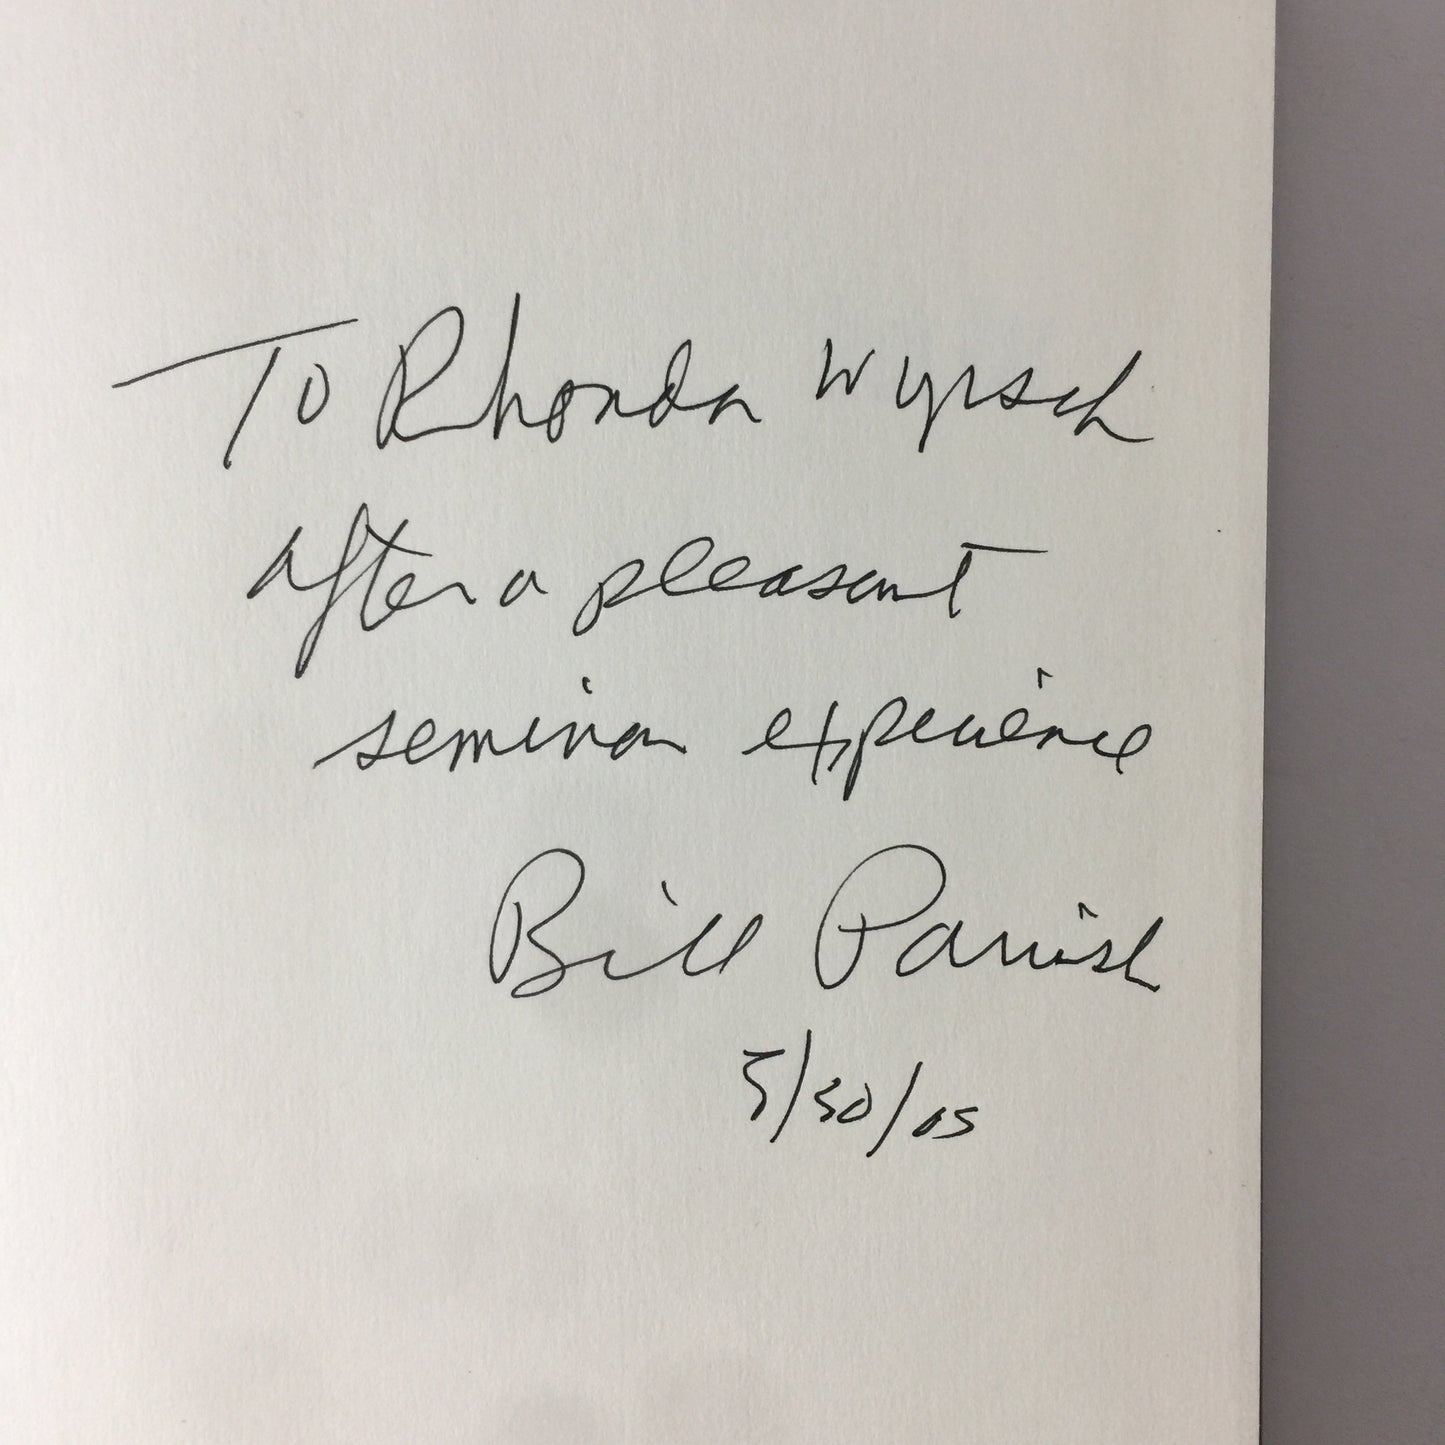 To Rhonda Wyrsch
after a pleasant
seminar experience
Bill Parish
5/30/05